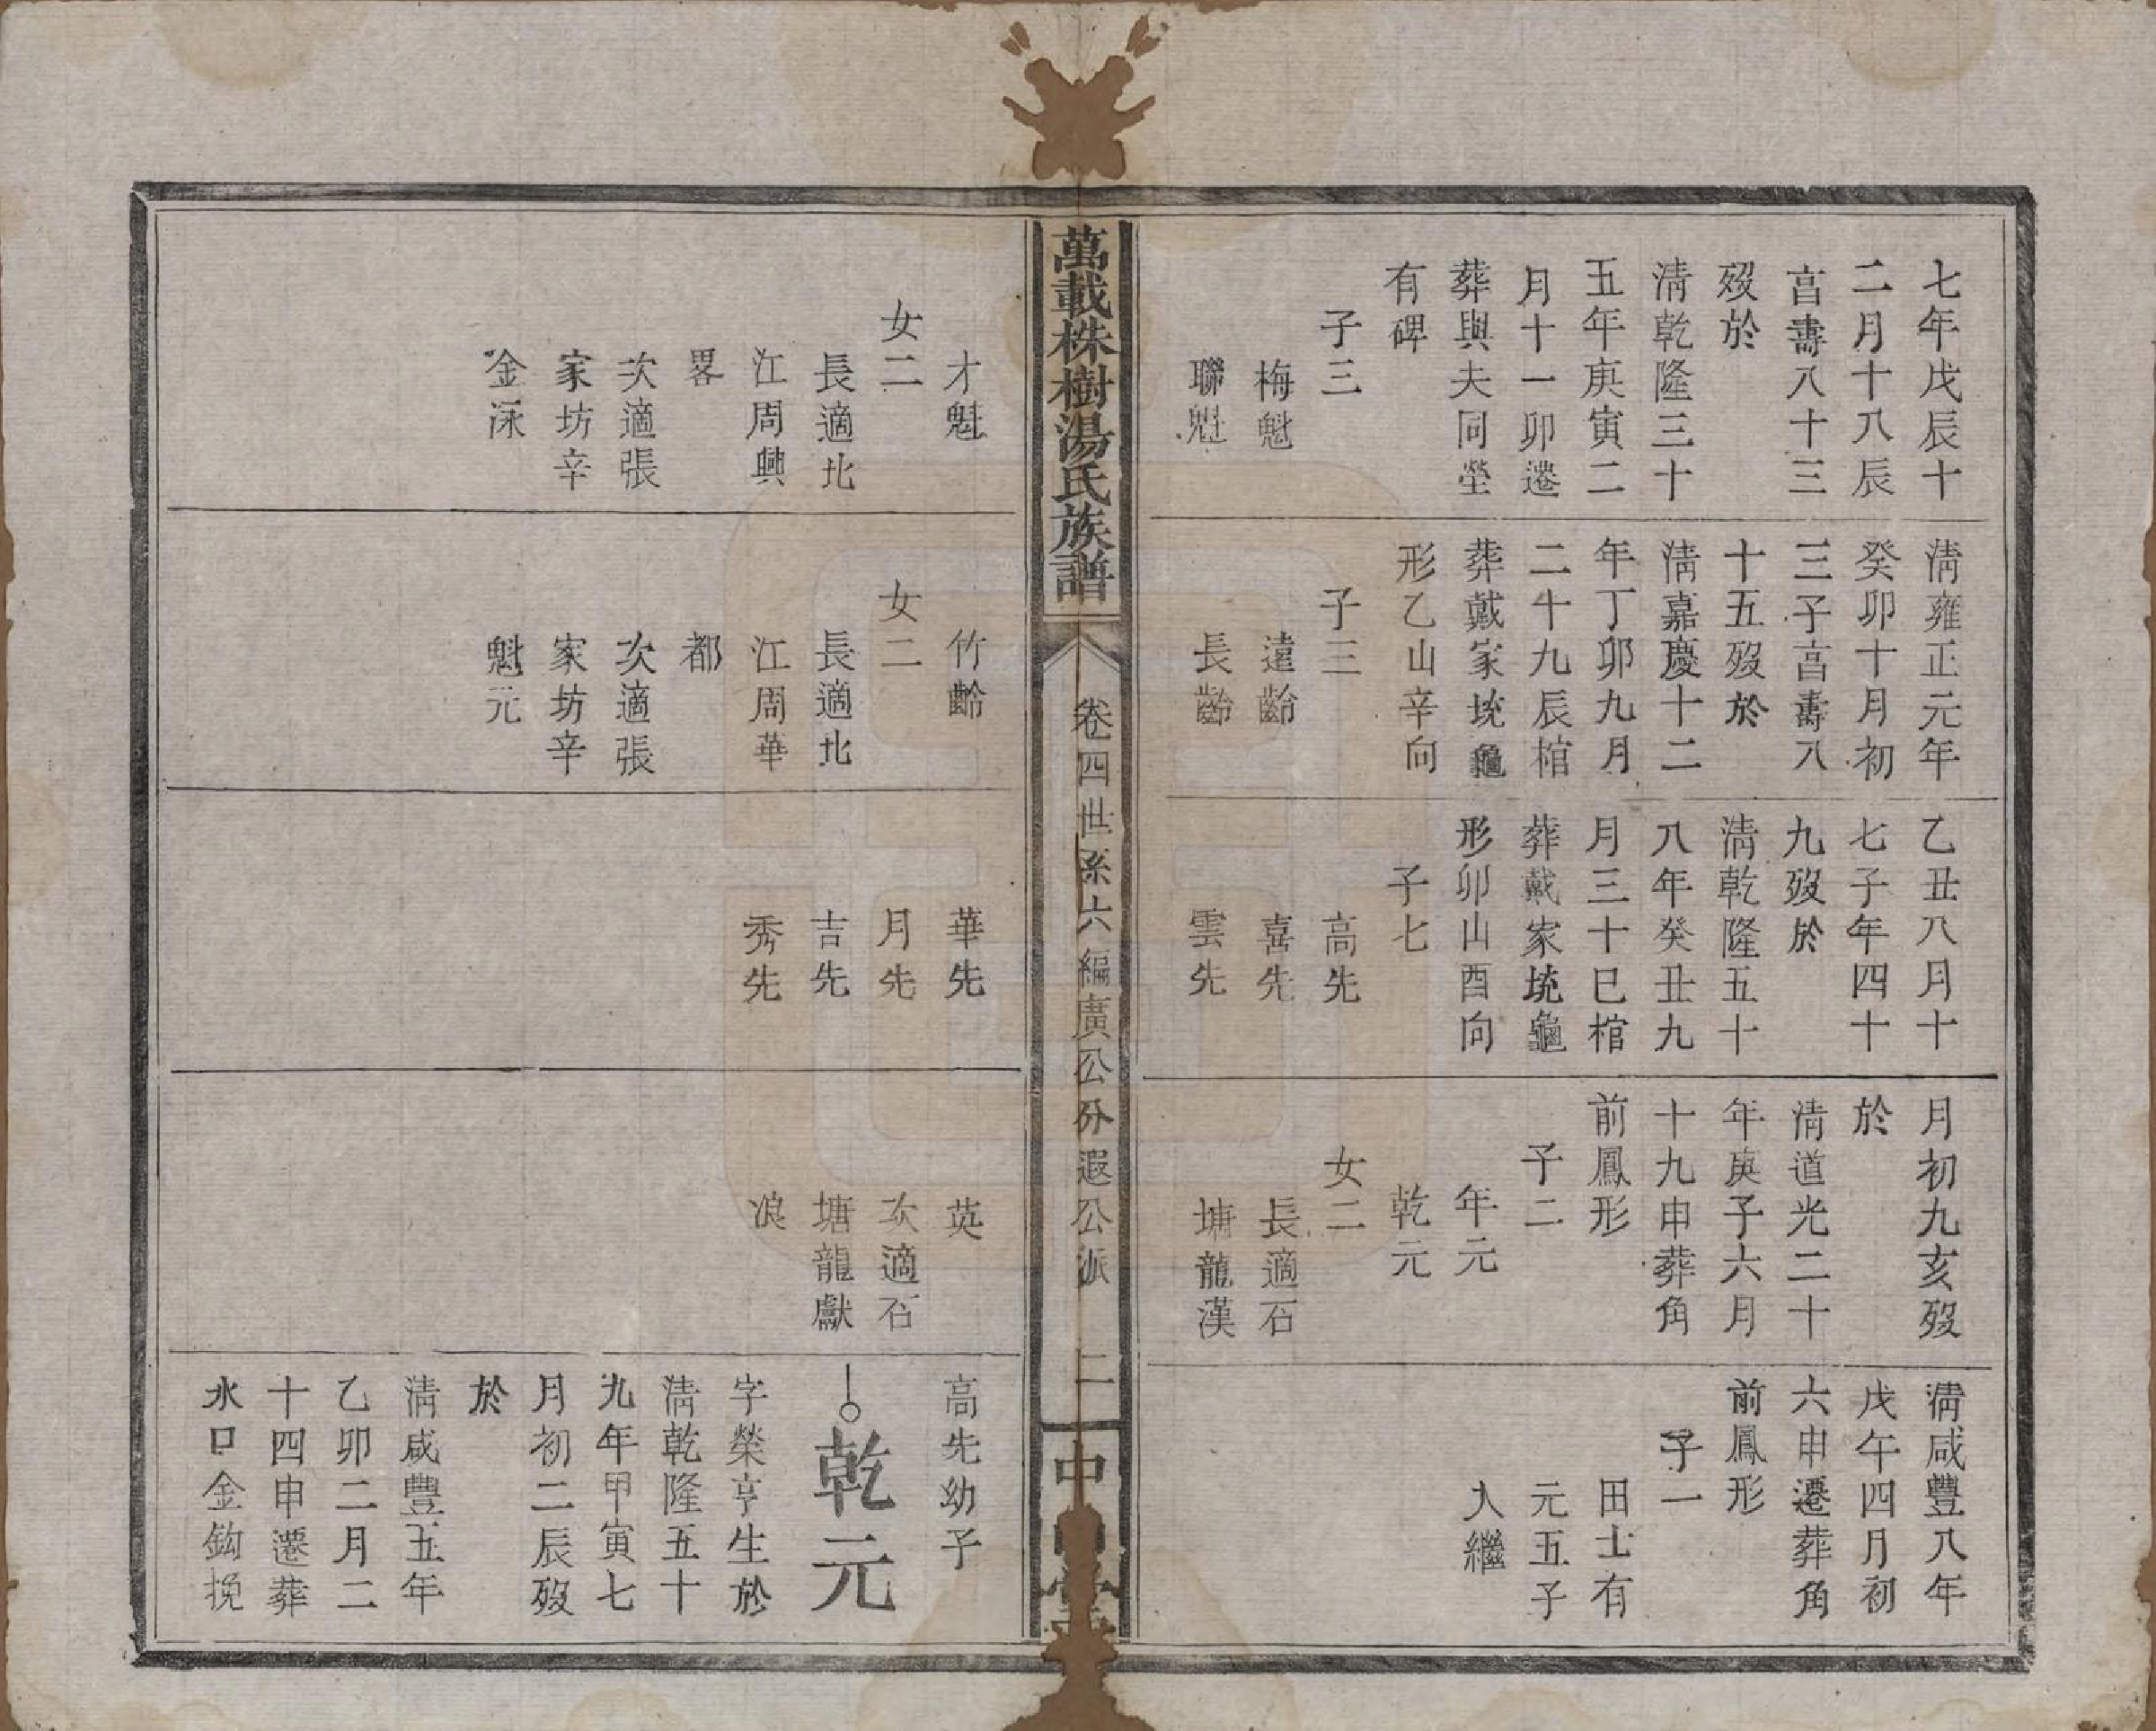 七年戊辰十
二月十八辰
亯壽八十三
歿於
淸乾隆三十
五年庚寅二
月十一卯遷
葬與夫同塋
有碑
子三
梅魁
聯魁
淸雍正元年
癸卯十月初
三子亯壽八
十五歿於
淸嘉慶十二
年丁卯九月
二十九辰棺
葬戴家坑龜
形乙山辛向
子三
遠齡
長齡
乙丑八月十
七子年四十
九歿於
淸乾隆五十
八年癸丑九
月三十巳棺
葬戴家坑龜
形卯山酉向
子七
高先
喜先
雲先
月初九亥歿
於
淸道光二十
年庚子六月
十九申葬角
前鳳形
子二
年元
乾元
女二
長適石
塘龍漢
淸咸豐八年
戊午四月初
六申遷葬角
前鳳形
子一
田士有
元五子
入繼
萬載株樹湯氏族譜
卷四世系六編廣公分遐公派
二
中
堂
才魁
女二
長適北
江周興
畧
次適張
家坊辛
金泳
竹齡
女二
長適北
江周華
都
次適張
家坊辛
魁元
華先
月先
吉先
秀先
英
次適石
塘龍獻
浪
高先幼子
乾元
字榮亨生於
淸乾隆五十
九年甲寅七
月初二辰歿
於
淸咸豐五年
乙卯二月二
十四申遷葬
水口金鈎挽